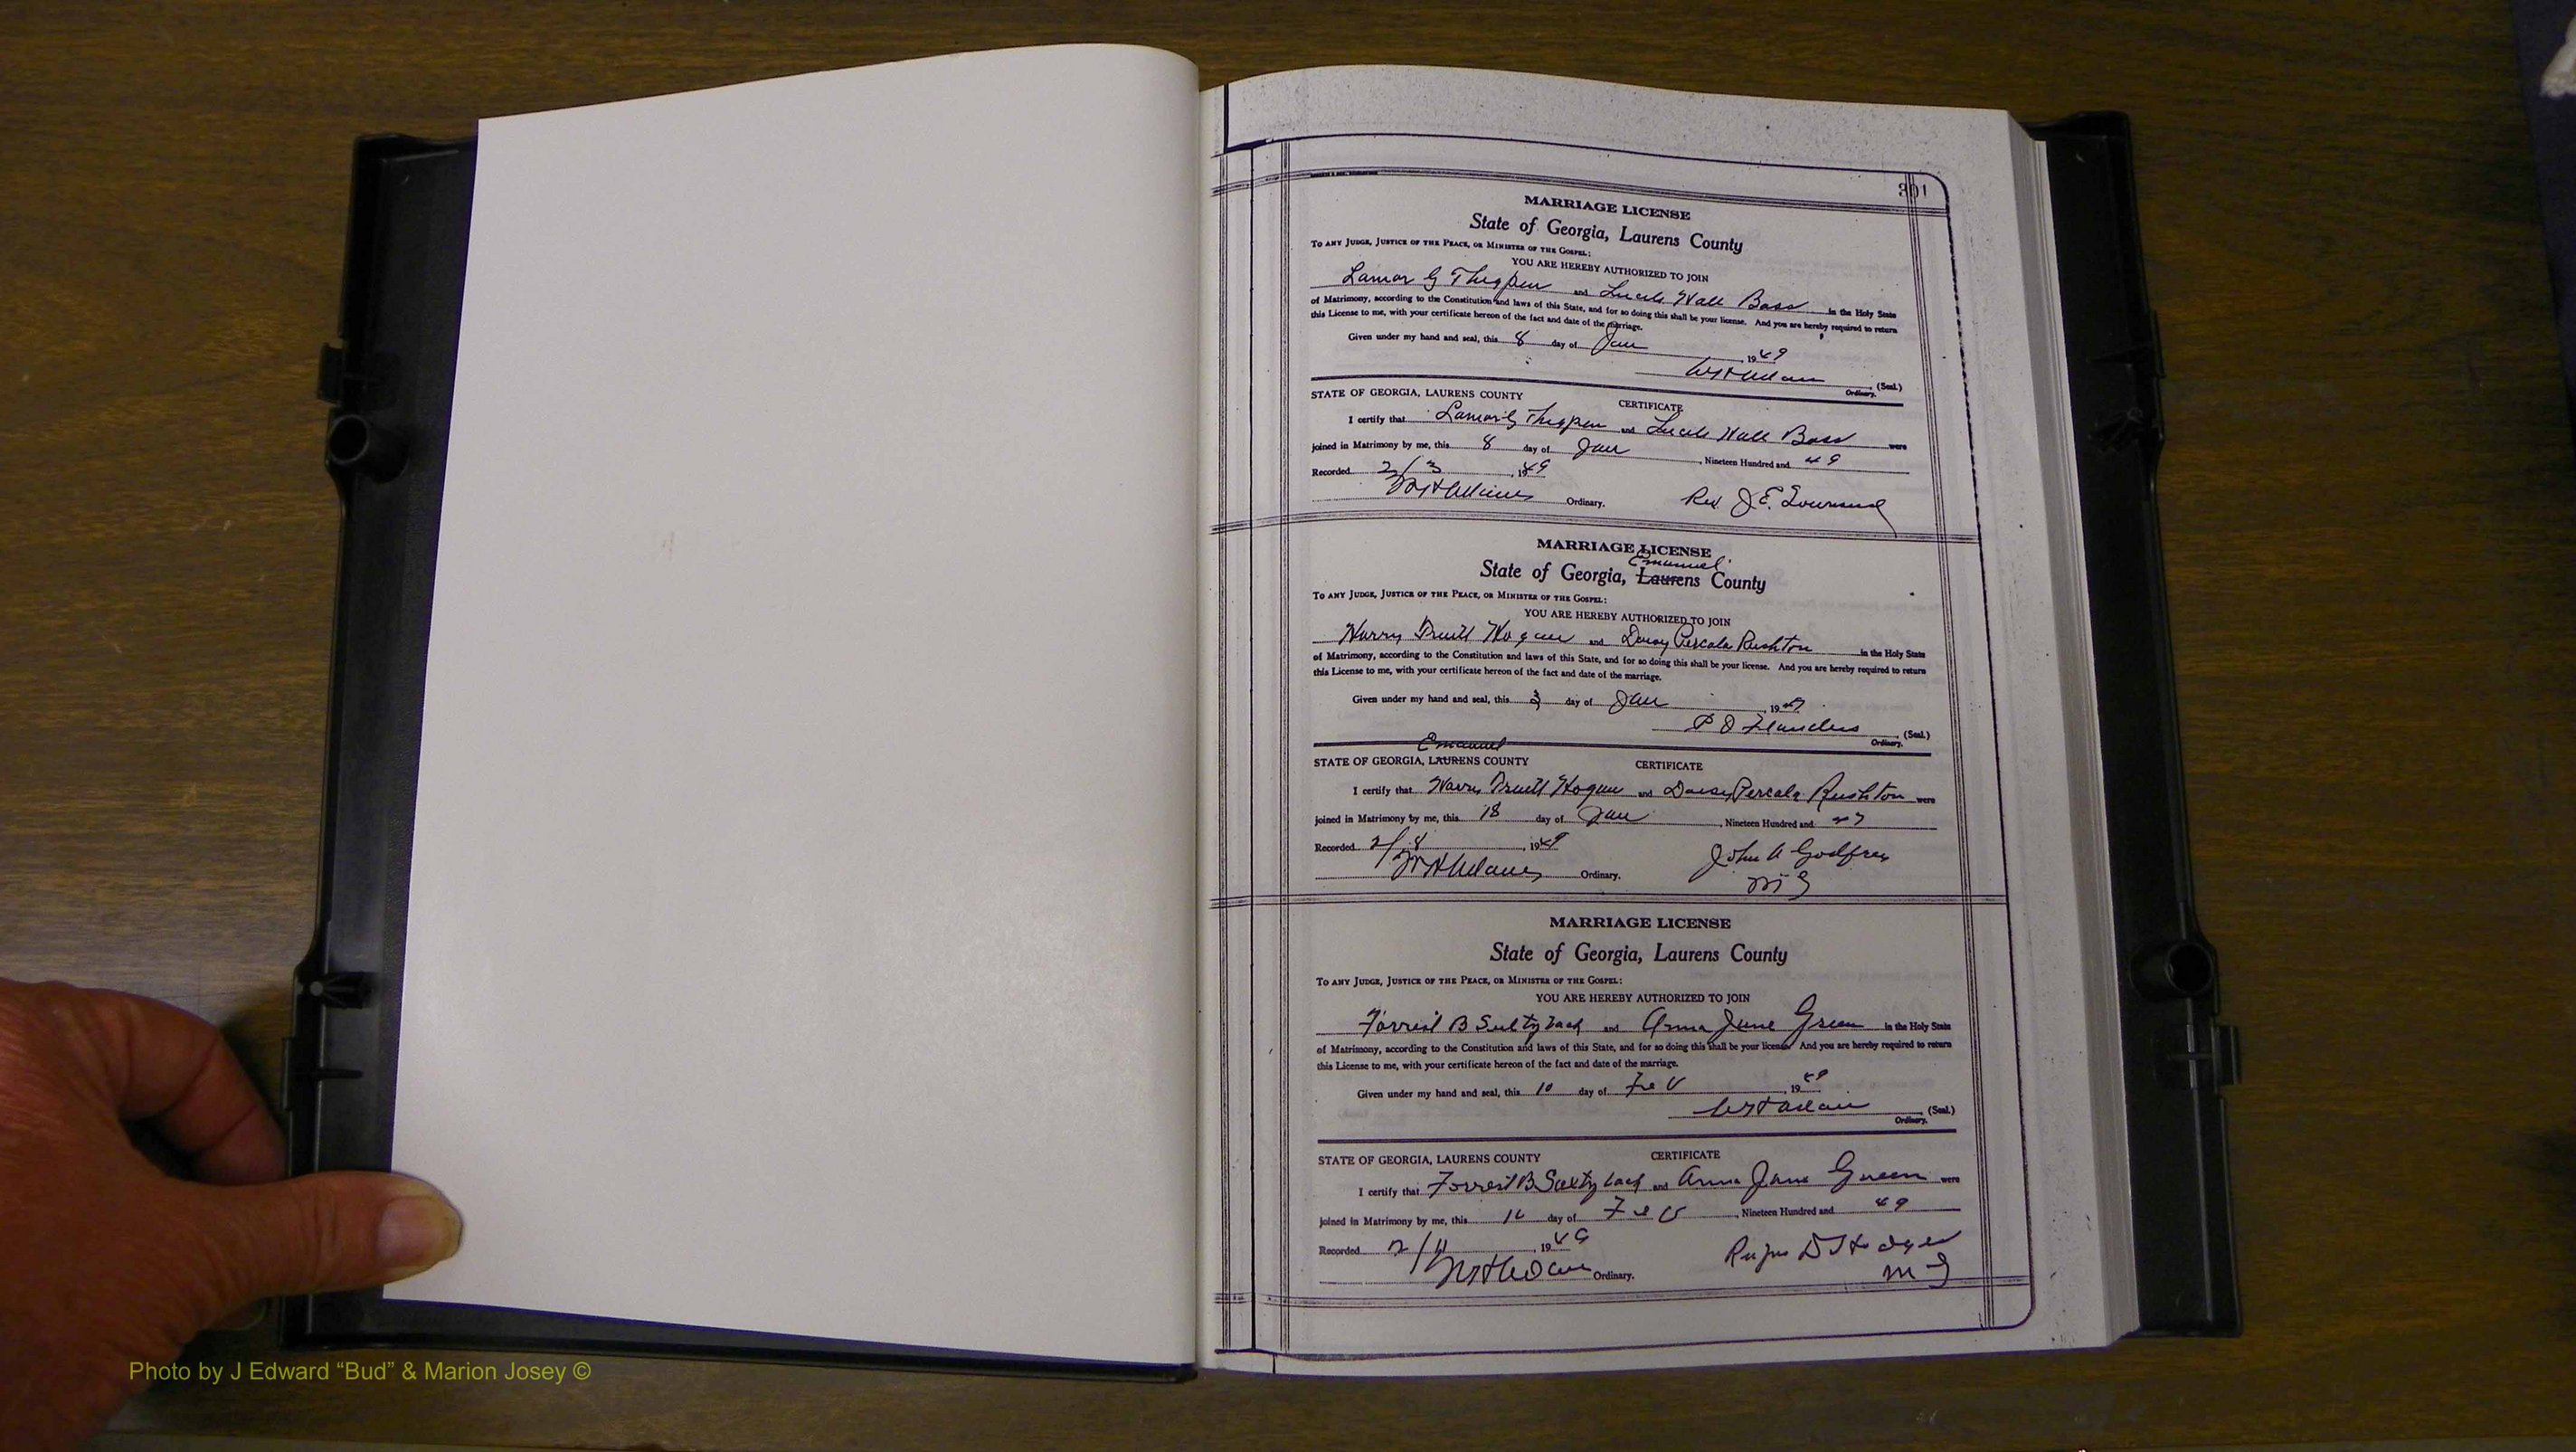 301
MARRIAGE LICENSE
State of Georgia, Laurens County
TO ANY JUDGE, JUSTICE OF THE PEACE, OR MINISTER OF THE GOSPEL:
YOU ARE HEREBY AUTHORIZED TO JOIN
Lamar G Thigpen and Lucile Wall Bass in the Holy State
of Matrimony, according to the Constitution and laws of this State, and for so doing this shall be your license. And you are hereby required to return
this License to me, with your certificate hereon of the fact and date of the marriage.
Given under my hand and seal, this 8 day of Jan, 1949
(Seal.)
Ordinary.
STATE OF GEORGIA, LAURENS COUNTY CERTIFICATE
I certify that Lamar G Thigpen and Lucile Wall Bass were
joined in Matrimony by me, this 8 day of Jan, Nineteen Hundred and 49
Recorded 2/3, 1949
Ordinary. Rev. J. E. Townsend
MARRIAGE LICENSE
Emanuel
State of Georgia, Laurens County
TO ANY JUDGE, JUSTICE OF THE PEACE, OR MINISTER OF THE GOSPEL:
YOU ARE HEREBY AUTHORIZED TO JOIN
Harry Truitt Hogan and Daisy Percala Rushton in the Holy State
of Matrimony, according to the Constitution and laws of this State, and for so doing this shall be your license. And you are hereby required to return
this License to me, with your certificate hereon of the fact and date of the marriage.
Given under my hand and seal, this 3 day of Jan, 19
P D Flanders (Seal.)
Ordinary.
Emanuel
STATE OF GEORGIA, LAURENS COUNTY CERTIFICATE
I certify that Harry Truitt Hogan and Daisy Percala Rushton were
joined in Matrimony by me, this 18 day of Jan, Nineteen Hundred and
Recorded 2/8, 1949
Ordinary. John A Godfrey
M G
MARRIAGE LICENSE
State of Georgia, Laurens County
TO ANY JUDGE, JUSTICE OF THE PEACE, OR MINISTER OF THE GOSPEL:
YOU ARE HEREBY AUTHORIZED TO JOIN
Forrest B and Anna Jane Green in the Holy State
of Matrimony, according to the Constitution and laws of this State, and for so doing this shall be your license. And you are hereby required to return
this License to me, with your certificate hereon of the fact and date of the marriage.
Given under my hand and seal, this 10 day of Feb, 1949
(Seal.)
Ordinary.
STATE OF GEORGIA, LAURENS COUNTY CERTIFICATE
I certify that Forrest B and Anna Jane Green were
joined in Matrimony by me, this day of Feb, Nineteen Hundred and 49
Recorded 2/11, 1949
Ordinary. Rufus D Hodges
M G
Photo by J Edward “Bud” & Marion Josey ©